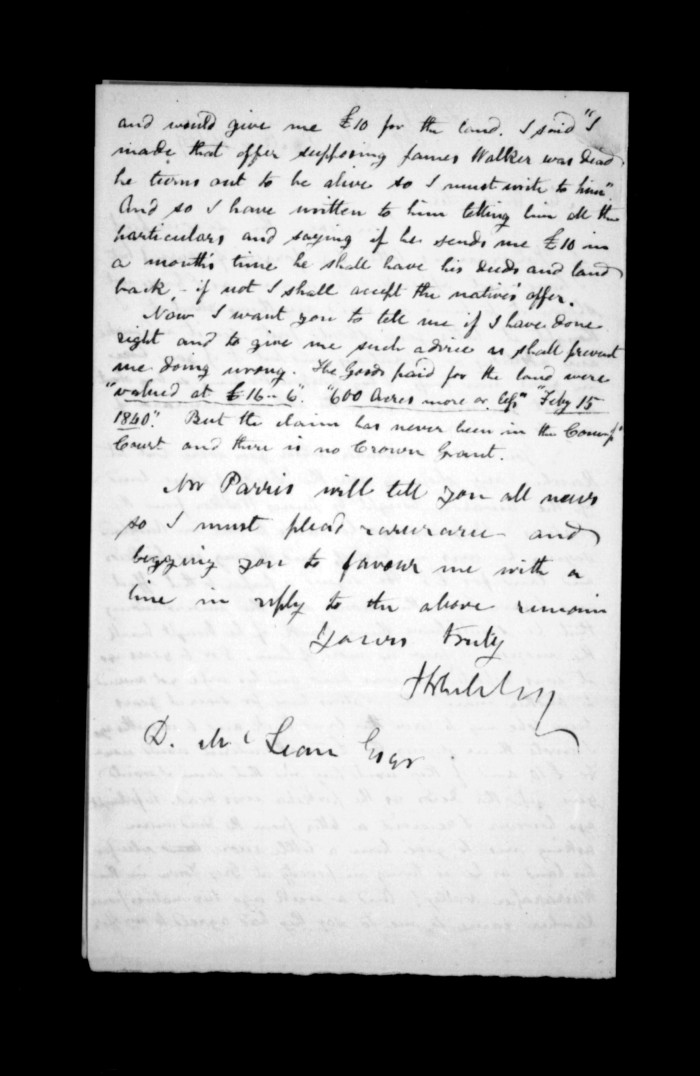 and would give me £10 for the land. I said "I
made that offer supposing James Walker was dead
he turns out to be alive so I must write to him"
And so I have written to him telling him all the
particulars and saying if he sends me £10 in
a month's time he shall have his deeds and land
back - if not I shall accept the natives' offer.
Now I want you to tell me if I have done
right and to give me such advice as shall prevent
me doing wrong. The Goods paid for the land were
"valued at £16..6". "600 Acres more or less" "Feby 15
1840". But the claim has never been in the
Court and there is no Crown Grant.
Mr Parris will tell you all news
so I must plead and
begging you to favour me with a
line in reply to the above remain
Yours truly
D. McLean Esqr